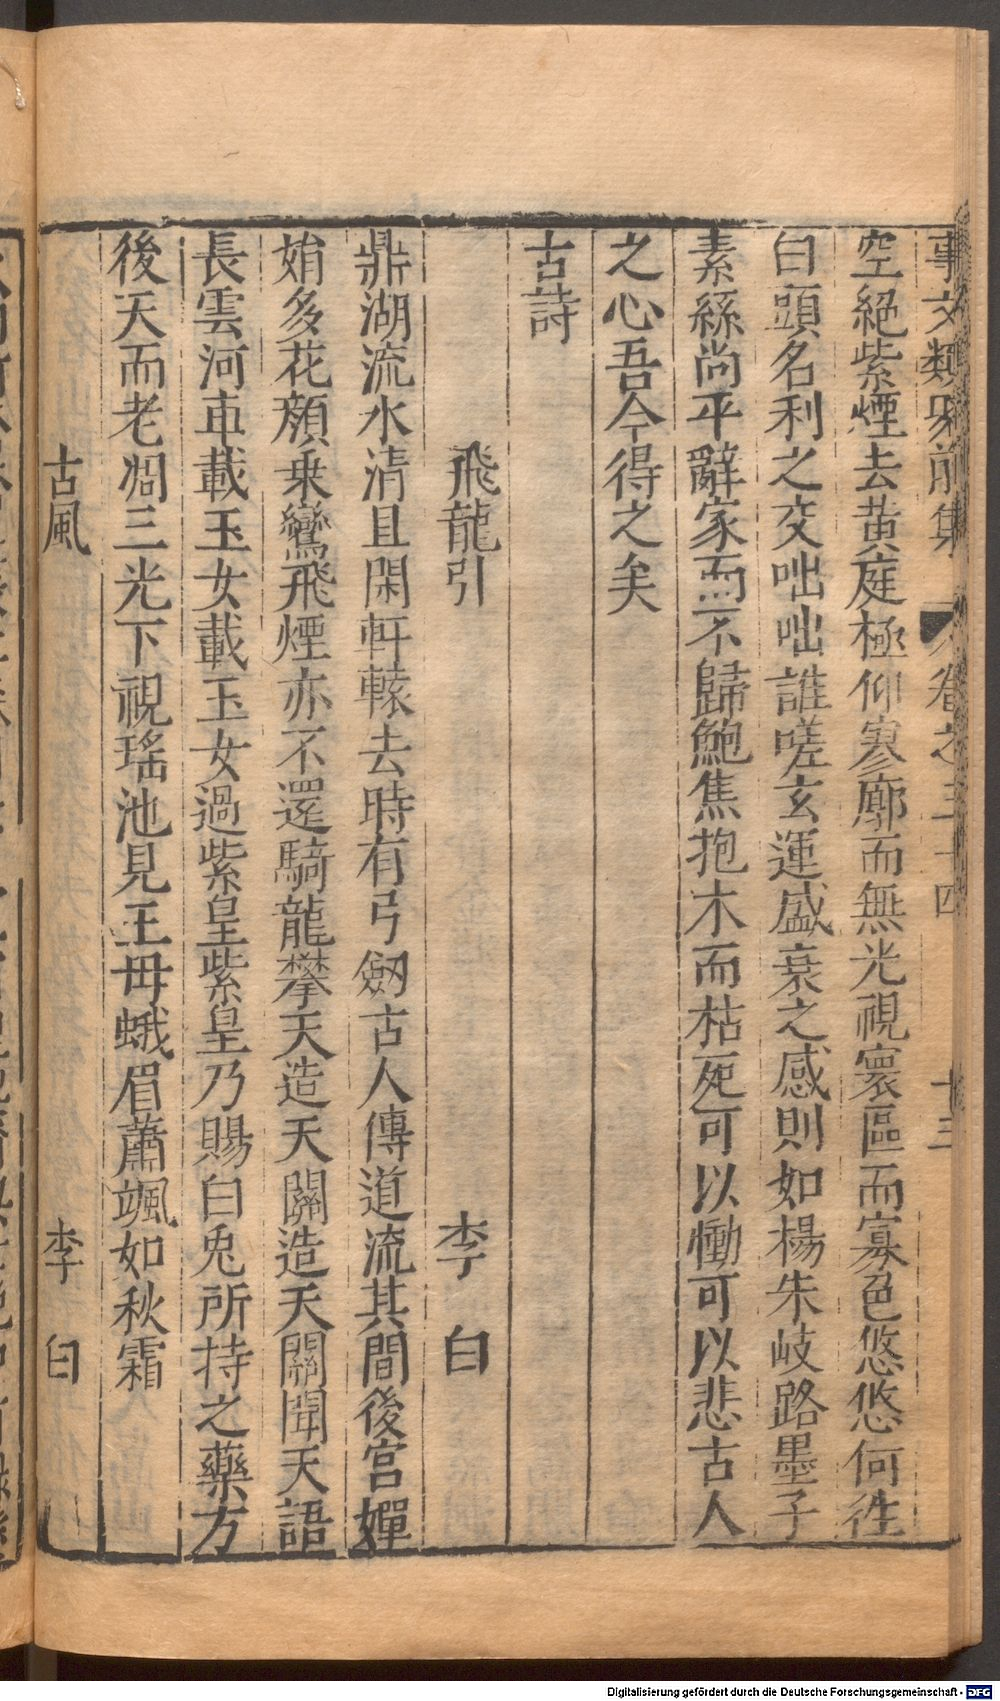 事文類聚前集 卷之三十四 十三
空絕紫煙去黃庭極仰寥廓而無光視寰區而寡色悠悠何往
白頭名利之交咄咄誰嗟玄運盛衰之感則如楊朱岐路墨子
素絲尚平辭家而不歸鮑焦抱木而枯死可以慟可以悲古人
之心吾今得之矣
古詩
飛龍引 李白
鼎湖流水清且閑軒轅去時有弓劒古人傳道流其間後宮嬋
娟多花顏乗鸞飛煙亦不還騎龍攀天造天關造天關聞天語
長雲河車載玉女載玉女過紫皇紫皇乃賜白兎所持之藥方
後天而老凋三光下視瑤池見王母蛾眉蕭颯如秋霜
古風 李白